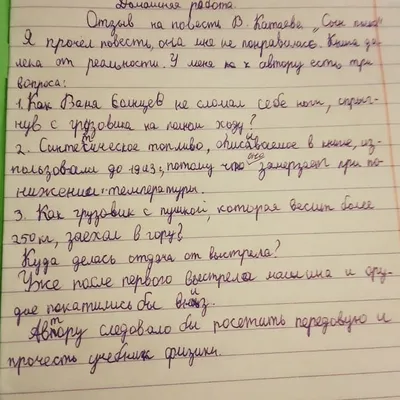 Домашняя работа
Отзыв на повесть В. Катаева "Сын полка"
Я прочёл повесть, она мне не понравилась. Книга да-
лека от реальности. У меня по к автору есть три
вопроса:
1. Как Ваня Солнцев не сломал себе ноги, спрыг-
нув с грузовика на полном ходу?
2. Синтетическое топливо, описываемое в книге, ис-
пользовали до 1943, потому что оно замерзает при по-
нижении температуры.
3. Как грузовик с пушкой, которая весит более
250 кг, заехал в гору?
Куда делась отдача от выстрела?
Уже после первого выстрела машина и ору-
дие покатились бы вниз.
Автору следовало бы посетить передовую и
прочесть учебник физики.